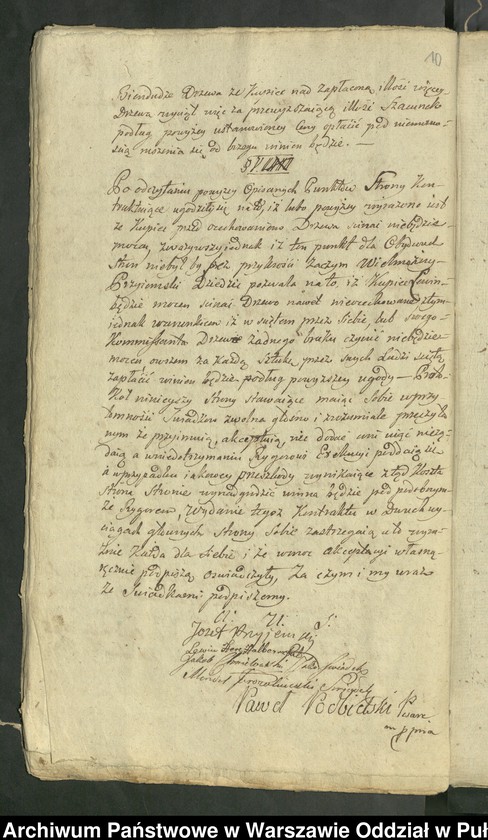 10
Będzie Drzewa ze Kupiec nad zapłaconą illość więcey
Drzewa wyciął więc za przewyższaiącą illość Szacunek
podług powyżey ustanowioney Ceny opłacić pod niemożno-
ścią ruszenia się od brzegu winien będzie. —
Po odczytaniu powyżey Opisanych Punktów Strony Kon-
traktuiące ugodziły się na to, iż lubo powyżey wyrażono iest
że Kupiec przed ocechowaniem Drzewa scinać niebędzie
mocen, zważywszy iednak iż ten punkt dla Obydwuch
Stron niebył by bez przykrości zaczym Wielmożny
Przyiemski Dziedzic pozwala na to, iż Kupiec Lewin
będzie mocen scinać Drzewo nawet nieocechowane z tym
iednak warunkiem iż w ściętem przez Siebie lub swego
Kommissanta Drzewie żadnego braku czynić niebędzie
mocen owszem za każdą Sztukę przez swych ludzi ściętą
zapłacić winien będzie podług powyższey ugody — Proto-
kół ninieyszy Strony stawaiące maiąc Sobie w przy-
tomności Świadków zwolna głośno i zrozumiale przeczyta-
nym że przyimuią, akceptuią, nic dodać ani uiąć nieżą-
daią a w niedotrzymaniu Rygorowi Exekucyi poddaią się
a w przypadku iakowey przeszkody wynikaiące z tąd Koszta
Strona Stronie wynadgrodzić winna będzie pod podobnym-
że Rygorem, Wydanie tegoż Kontraktu w Dwóch wy-
ciągach głównych Strony Sobie zastrzegaią a to wyra-
źnie Każda dla Siebie i że w moc akceptacyi własno-
ręcznie podpiszą oświadczyły, Za czym i my wraz
ze Świadkami podpisuiemy.
Józef Przyjemski
Lewin Herz
Jakób Chmielewski Jako Świadek
Paweł Podbielski Pisarz